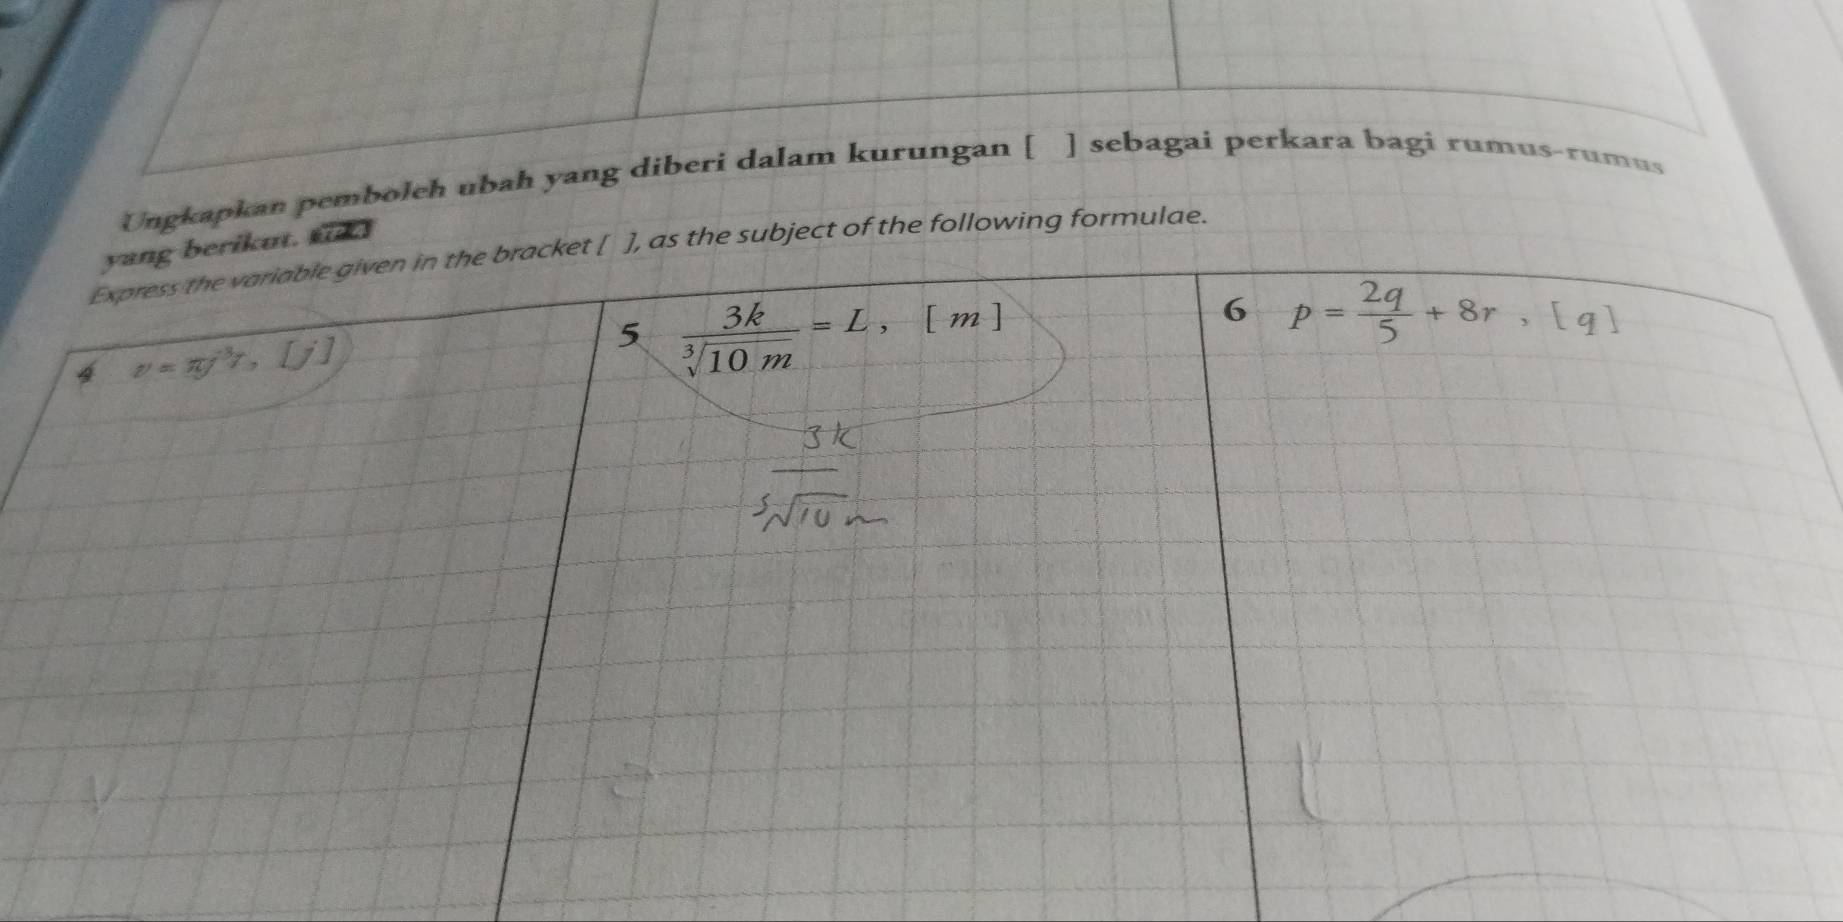 Ungkapkan pemboleh ubah yang diberi dalam kurungan [ ] sebagai perkara bagi rumus-rumus
yang berikut.
Express the variable given in the bracket [ ], as the subject of the following formulae.
4 v = πj³r, [j]
5 \frac{3k}{\sqrt[3]{10 m}} = L, [m]
6 p = \frac{2q}{5} + 8r, [q]
3k
∛10 m